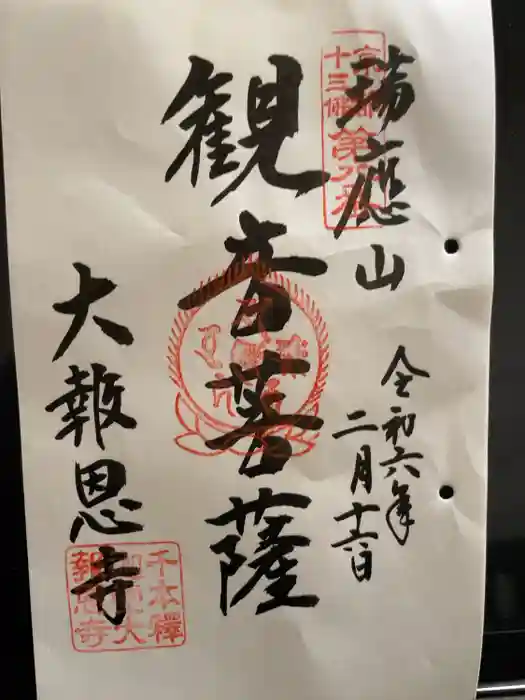 京都
十三佛
第八番
瑞應山
令和六年
二月十六日
観音菩薩
大報恩寺
千本釋
迦堂大
報恩寺